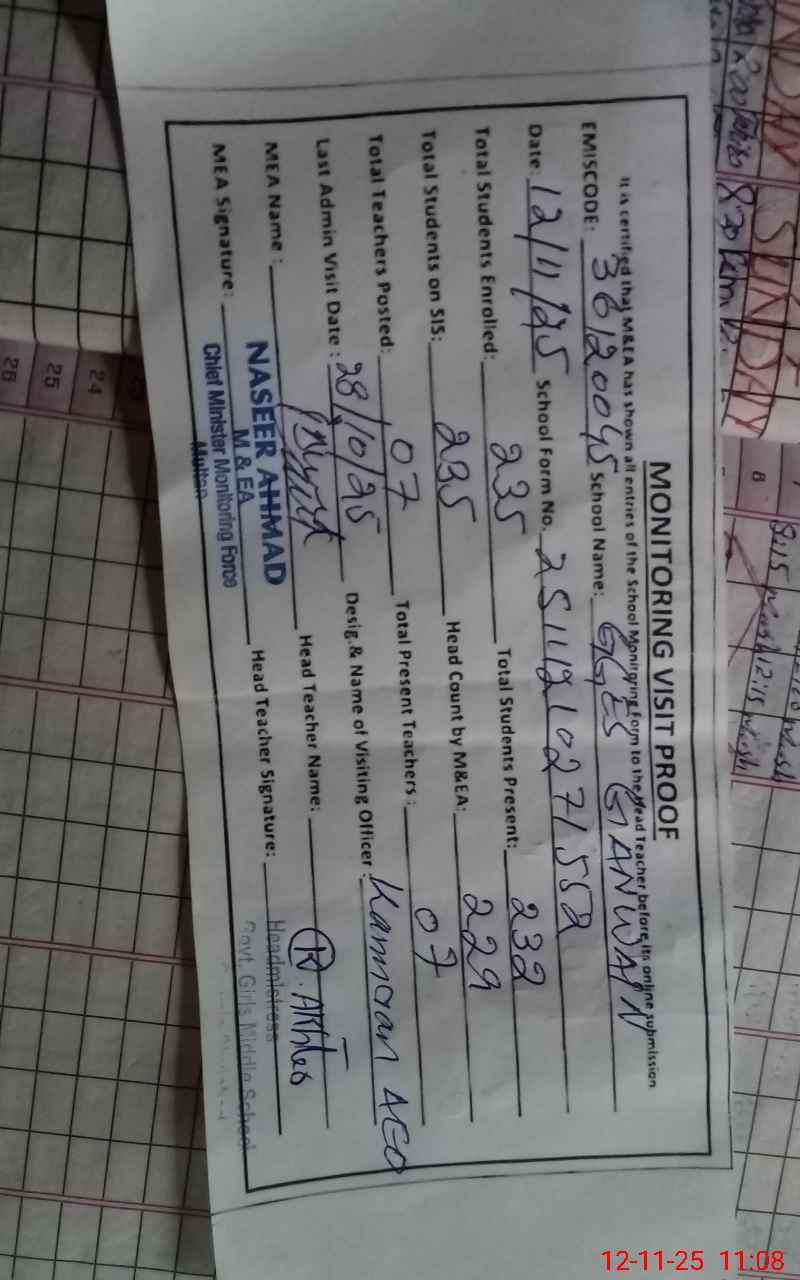 MONITORING VISIT PROOF
It is certified that M&EA has shown all entries of the School Monitoring form to the Head Teacher before its online submission
EMISCODE: 36120045 School Name: GGES GANWAIN
Date: 12/11/25 School Form No. 25111210271552
Total Students Enrolled: 235 Total Students Present: 232
Total Students on SIS: 235 Head Count by M&EA: 229
Total Teachers Posted: 07 Total Present Teachers: 07
Last Admin Visit Date: 28/10/25 Desig.& Name of Visiting Officer: Kamran AEO
MEA Name: Head Teacher Name: R. Akhter
MEA Signature: Head Teacher Signature:
NASEER AHMAD
M & EA
Chief Minister Monitoring Force
Multan
Headmistress
Govt. Girls Middle School
SUNDAY
8
8:15
12:15
24
25
26
12-11-25 11:08